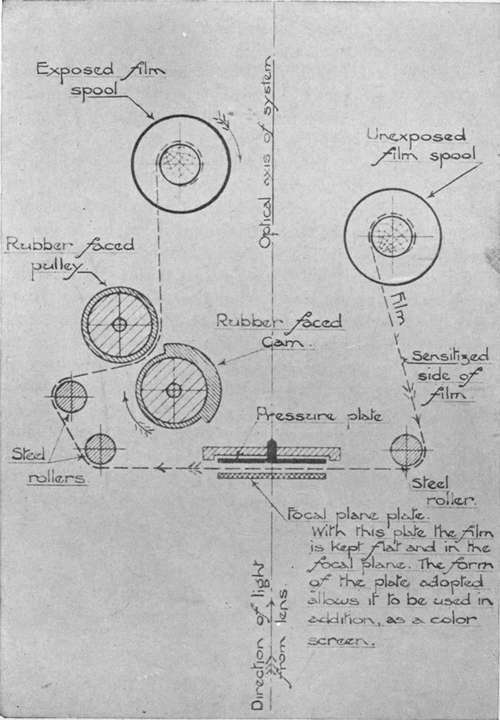 Exposed film
spool
Optical axis of system
Unexposed
film spool
Rubber faced
pulley
Film
Rubber faced
cam.
Sensitized
side of
film.
Pressure plate
Steel
rollers.
Steel
roller.
Focal plane plate.
With this plate the film
is kept flat and in the
focal plane. The form
of the plate adopted
allows it to be used in
addition, as a color
screen.
Direction of light
from lens.